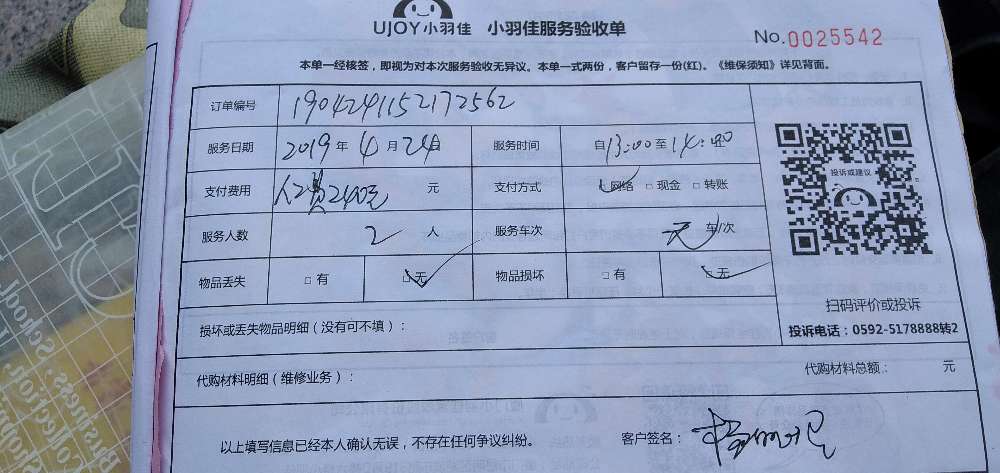 UJOY小羽佳 小羽佳服务验收单
No.0025542
本单一经核签，即视为对本次服务验收无异议。本单一式两份，客户留存一份(红)。《维保须知》详见背面。
订单编号 1904241152172562
服务日期 2019年4月24日 服务时间 自13:00至14:40
支付费用 人工费240元 元 支付方式 网络 □ 现金 □ 转账
服务人数 2 人 服务车次 无 车/次
物品丢失 □ 有 □ 无 物品损坏 □ 有 □ 无
投诉或建议
扫码评价或投诉
损坏或丢失物品明细（没有可不填）：
投诉电话：0592-5178888转2
代购材料明细（维修业务）：
代购材料总额： 元
以上填写信息已经本人确认无误，不存在任何争议纠纷。 客户签名：